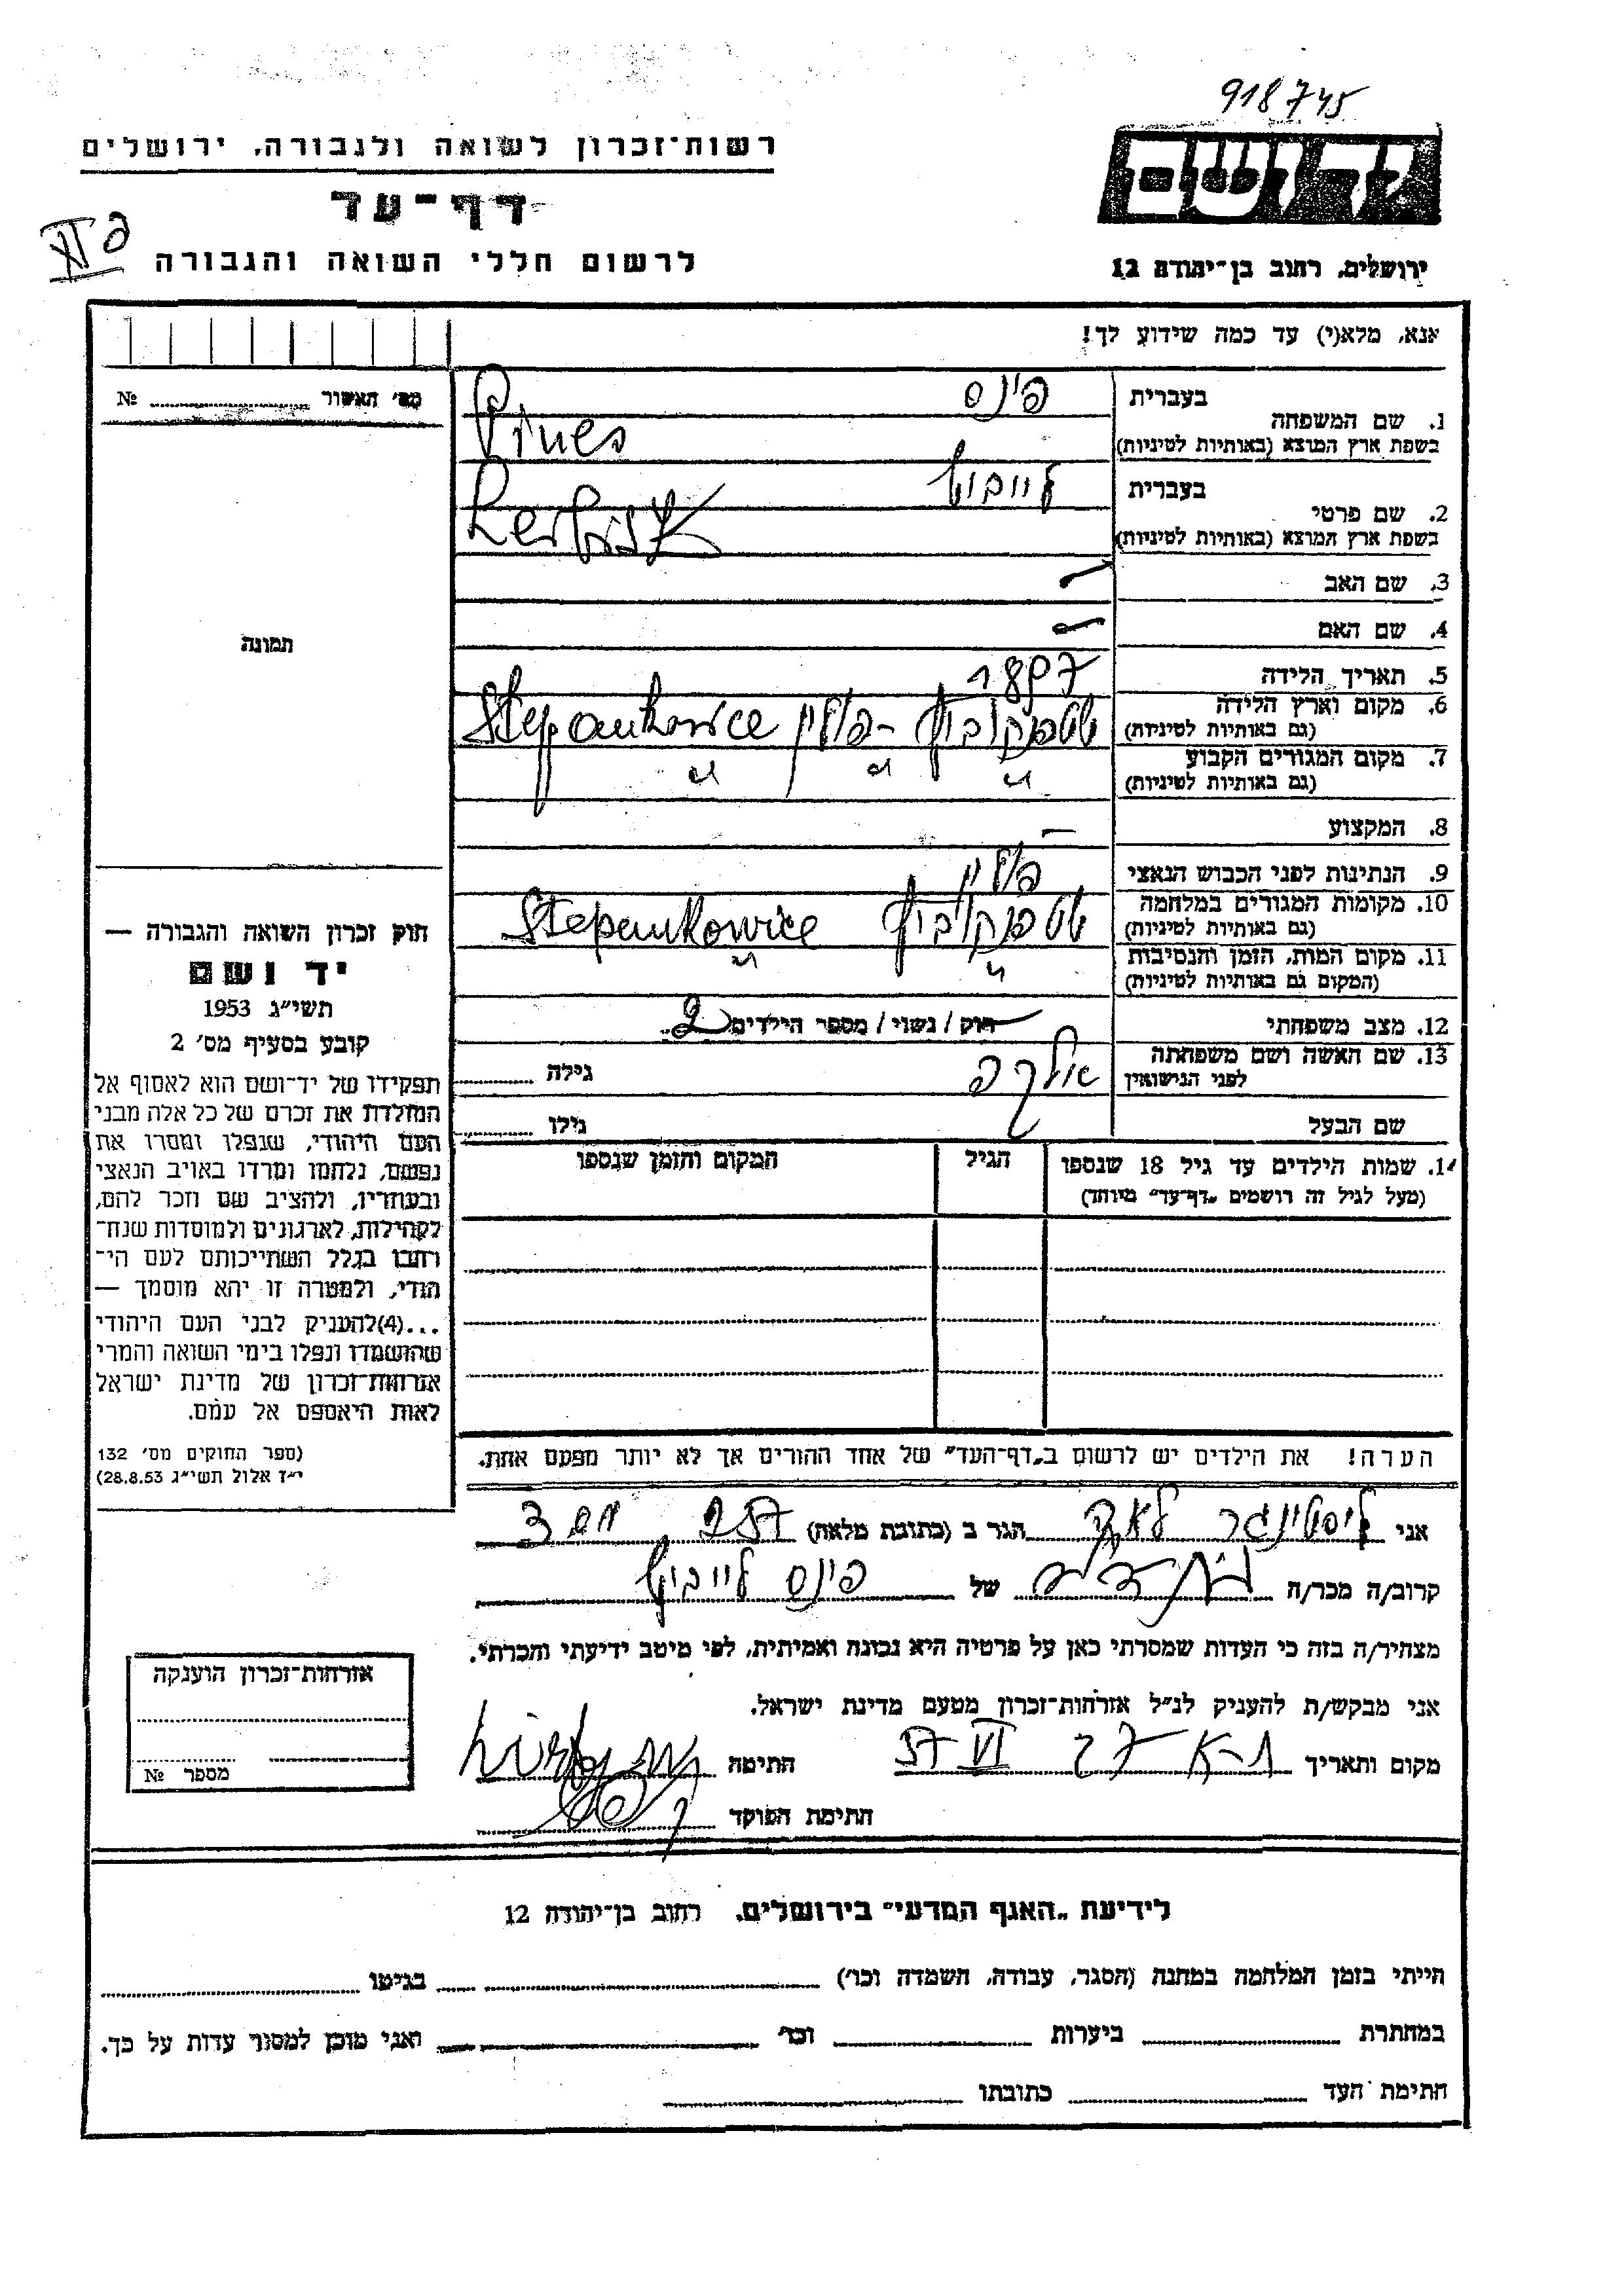 918745
רשות־זכרון לשואה ולגבורה, ירושלים
ידושם
דף־עד
לרשום חללי השואה והגבורה
ירושלים, רחוב בן־יהודה 12
אנא, מלא(י) עד כמה שידוע לך!
מס׳ האשור № 
בעברית פינס
1. שם המשפחה
בשפת ארץ המוצא (באותיות לטיניות) Pines
בעברית לייביש
2. שם פרטי
בשפת ארץ המוצא (באותיות לטיניות)
3. שם האב —
4. שם האם —
5. תאריך הלידה 1897
6. מקום וארץ הלידה
(גם באותיות לטיניות) שטפנקוביץ - פולין Stepankowice
7. מקום המגורים הקבוע
(גם באותיות לטיניות) " " "
8. המקצוע —
9. הנתינות לפני הכבוש הנאצי פולין
10. מקומות המגורים במלחמה
(גם באותיות לטיניות) שטפנקוביץ Stepankowice
11. מקום המות, הזמן והנסיבות
(המקום גם באותיות לטיניות) " "
12. מצב משפחתי רווק / נשוי / מספר הילדים 2
13. שם האשה ושם משפחתה
לפני הנישואין גילה
שם הבעל גילו
1. שמות הילדים עד גיל 18 שנספו
(מעל לגיל זה רושמים „דף־עד״ מיוחד)
הגיל
המקום והזמן שנספו
הערה! את הילדים יש לרשום ב„דף־העד״ של אחד ההורים אך לא יותר מפעם אחת.
תמונה
חוק זכרון השואה והגבורה —
יד ושם
תשי״ג 1953
קובע בסעיף מס׳ 2
תפקידו של יד־ושם הוא לאסוף אל
המולדת את זכרם של כל אלה מבני
העם היהודי, שנפלו ומסרו את
נפשם, נלחמו ומרדו באויב הנאצי
ובעוזריו, ולהציב שם וזכר להם,
לקהילות, לארגונים ולמוסדות שנח־
רבו בגלל השתייכותם לעם הי־
הודי, ולמטרה זו יהא מוסמך —
...(4)להעניק לבני העם היהודי
שהושמדו ונפלו בימי השואה והמרי
אזרחות־זכרון של מדינת ישראל
לאות היאספם אל עמם.
(ספר החוקים מס׳ 132
י״ז אלול תשי״ג 28.8.53)
אני הגר ב (כתובת מלאה)
קרוב/ה מכר/ה של פינס לייביש
מצהיר/ה בזה כי העדות שמסרתי כאן על פרטיה היא נכונה ואמיתית, לפי מיטב ידיעתי והכרתי.
אני מבקש/ת להעניק לנ״ל אזרחות־זכרון מטעם מדינת ישראל.
מקום ותאריך ת-א 27 VI 57 חתימה
חתימת הפוקד
אזרחות־זכרון הוענקה
מספר №
לידיעת „האגף המדעי״ בירושלים, רחוב בן־יהודה 12
הייתי בזמן המלחמה במחנה (הסגר, עבודה, השמדה וכו׳) בגיטו
במחתרת ביערות וכו׳ ואני מוכן למסור עדות על כך.
חתימת העד כתובתו